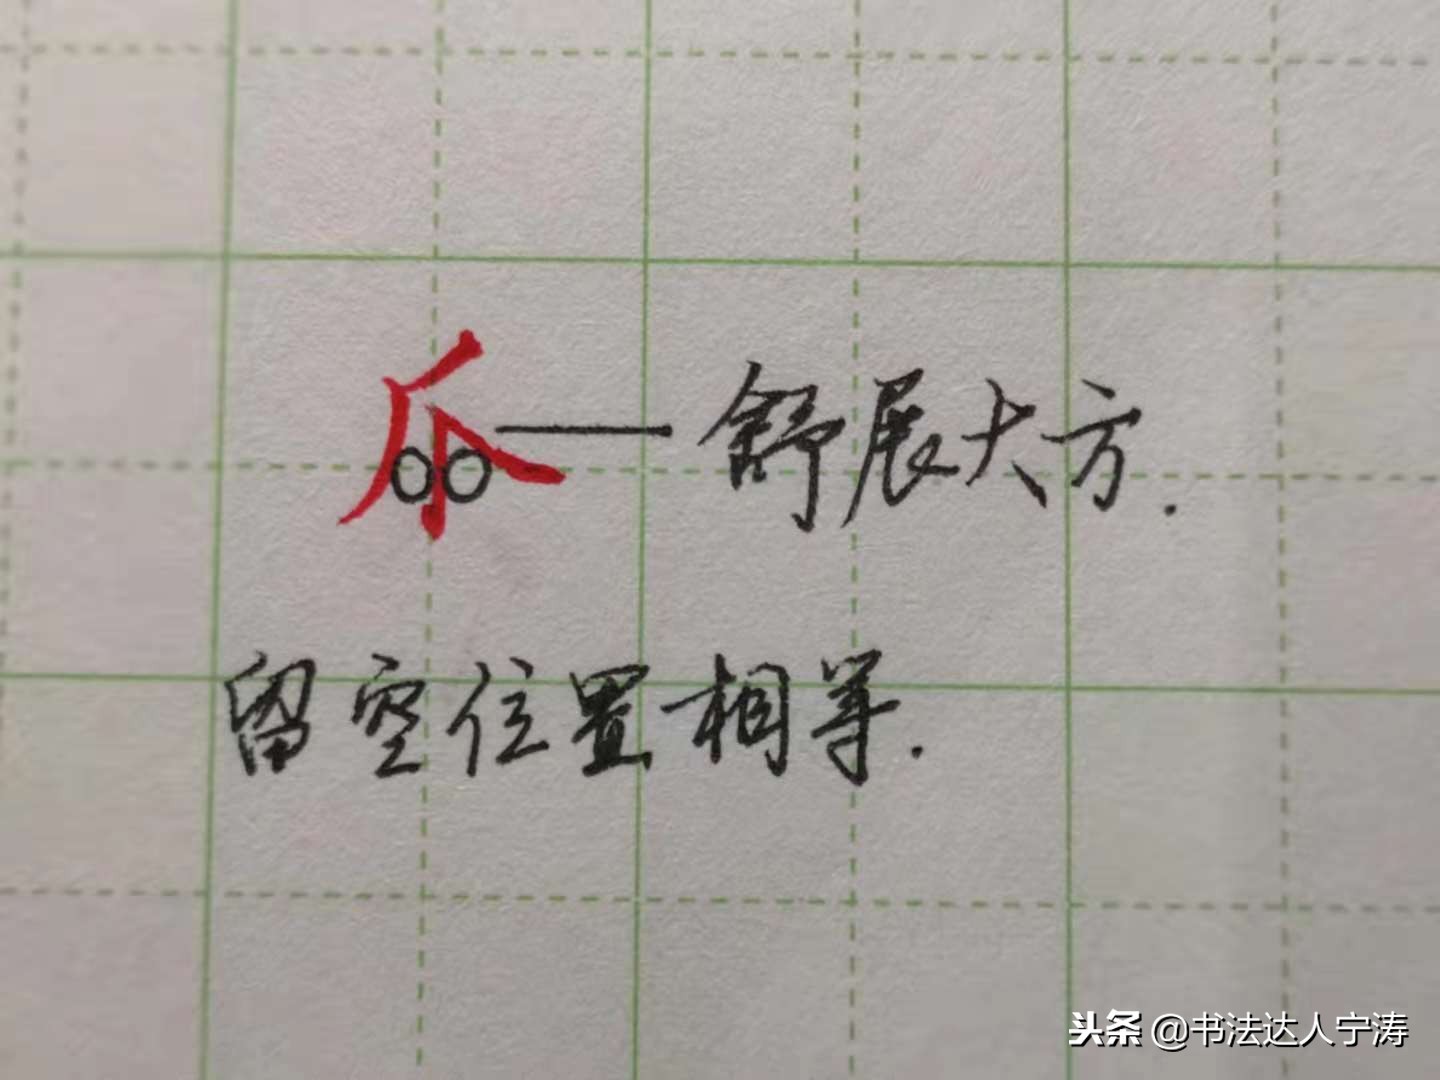 爪 舒展大方.
留空位置相等.
头条 @书法达人宁涛